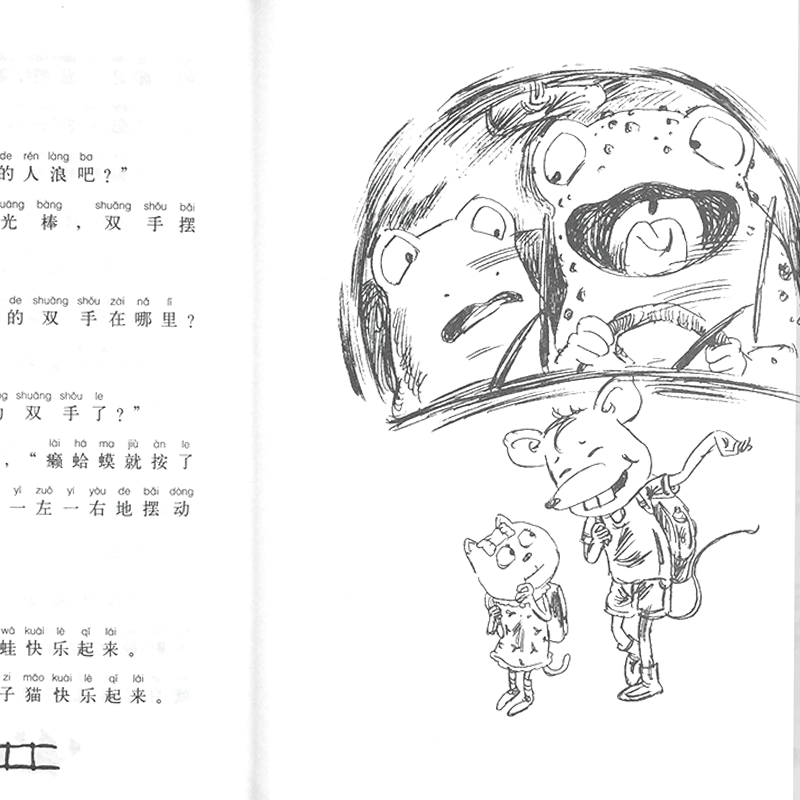 de rén làng ba
的人浪吧？”
guāng bàng shuāng shǒu bǎi
光棒，双手摆
de shuāng shǒu zài nǎ lǐ
的双手在哪里？
shuāng shǒu le
双手了？”
lài há ma jiù àn le
，“癞蛤蟆就按了
yì zuǒ yí yòu de bǎi dòng
一左一右地摆动
wā kuài lè qǐ lái
蛙快乐起来。
zi māo kuài lè qǐ lái
子猫快乐起来。